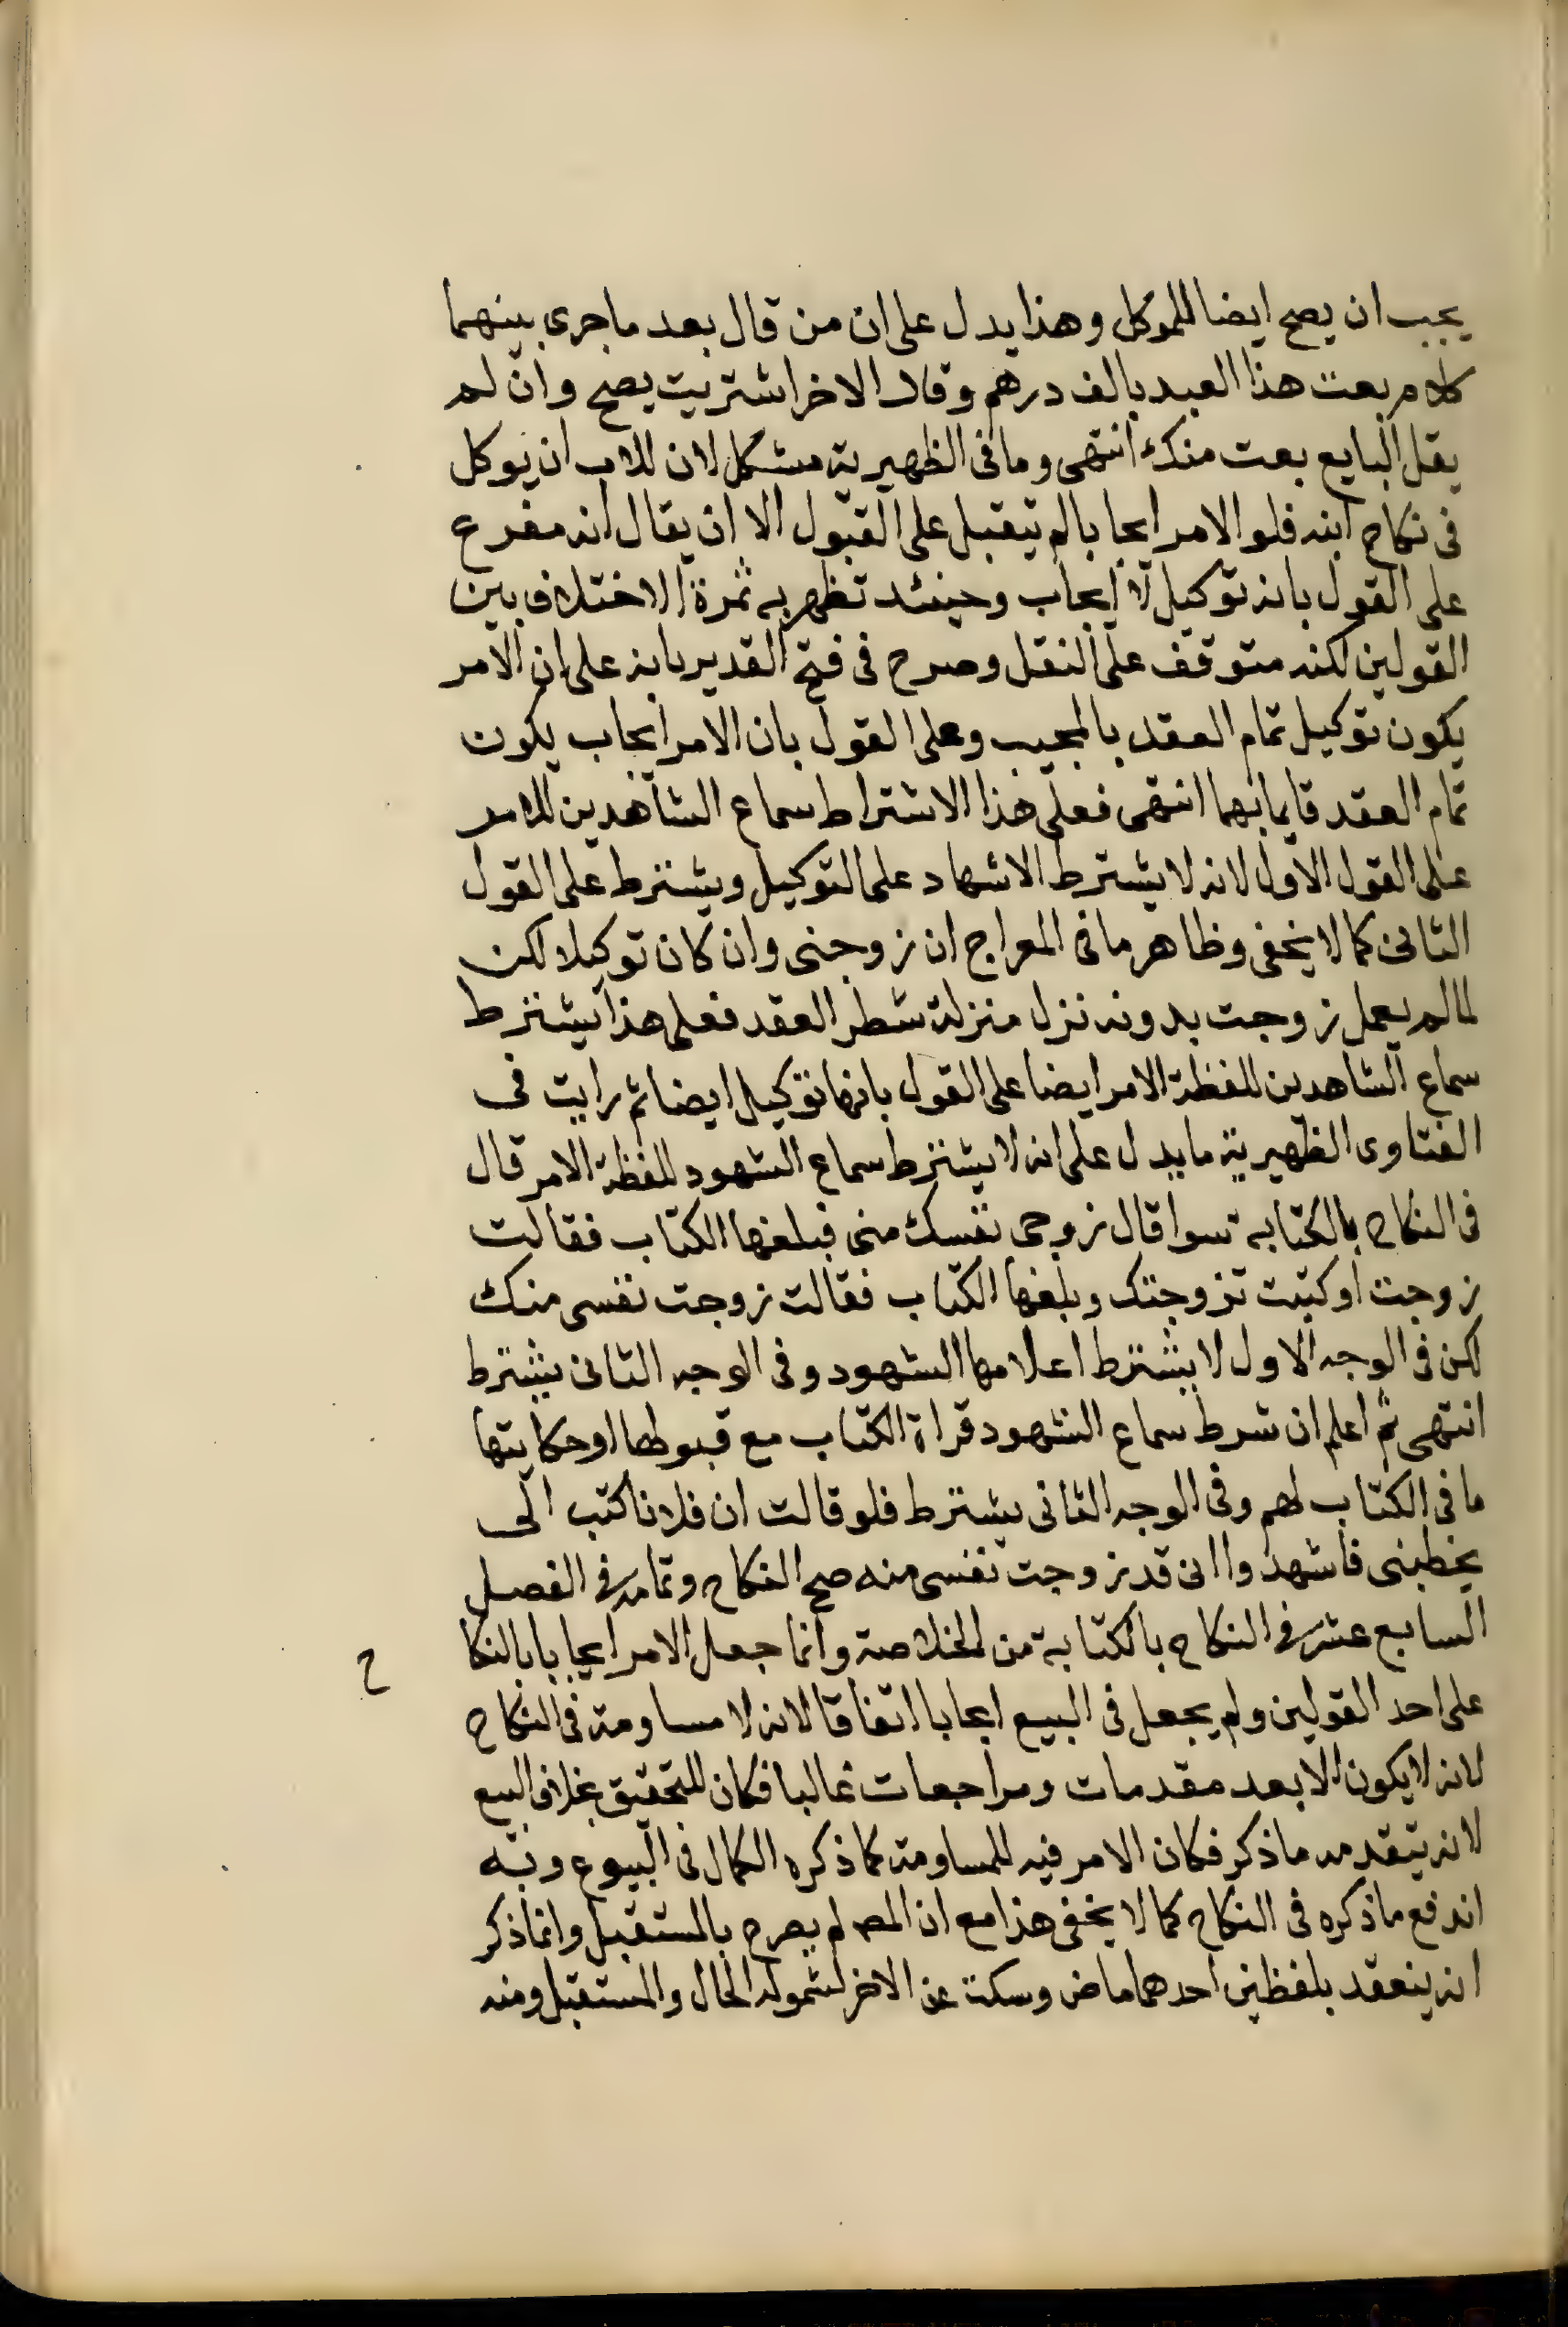 يجب ان يصح ايضا للموكل وهذا يدل على ان من قال بعد ما جرى بينهما
كلام بعت هذا العبد بالف درهم وقال الاخر اشتريت يصح وان لم
يقل البايع بعت منك انتهى وما فى الظهيرية مشكل لان للاب ان يوكل
فى نكاح ابنه فلو الامر ايجابا لم يتقبل على القبول الا ان يقال انه مفرع
على القول بانه توكيل لا ايجاب وحينئد تظهر به ثمرة الاختلاف بين
القولين لكنه متوقف على النقل وصرح فى فتح القدير بانه على ان الامر
يكون توكيل تمام العقد بالمجيب وعلى القول بان الامر ايجاب يكون
تمام العقد قايما بهما انتهى فعلى هذا الاشتراط سماع الشاهدين للامر
على القول الاول لانه لا يشترط الاشهاد على التوكيل ويشترط على القول
الثانى كما لا يخفى وظاهر ما فى المعراج ان زوجنى وان كان توكيلا لكن
لما لم يعمل زوجت بدونه نزل منزلة شطر العقد فعلى هذا يشترط
سماع الشاهدين للفظة الامر ايضا على القول بانها توكيل ايضا ثم رايت فى
الفتاوى الظهيرية ما يدل على انه لا يشترط سماع الشهود للفظة الامر قال
فى النكاح بالكتابة سوا قال زوجى نفسك منى فبلغها الكتاب فقالت
زوجت او كتبت تزوجتك وبلغها الكتاب فقالت زوجت نفسى منك
لكن فى الوجه الاول لا يشترط اعلامها الشهود وفى الوجه الثانى يشترط
انتهى ثم اعلم ان شرط سماع الشهود قراة الكتاب مع قبولها او حكايتها
ما فى الكتاب لهم وفى الوجه الثانى يشترط فلو قالت ان فلانا كتب الى
يخطبنى فاشهدوا انى قد زوجت نفسى منه صح النكاح وتمامه فى الفصل
السابع عشر فى النكاح بالكتابة من الخلاصة وانما جعل الامر ايجابا بالنكا
ح
على احد القولين ولم يجعل فى البيع ايجابا اتفاقا لانه لا مساومة فى النكاح
لانه لا يكون الا بعد مقدمات ومراجعات غالبا فكان للتحقيق بخلاف البيع
لانه يتقدمه ما ذكر فكان الامر فيه للمساومة كما ذكره الكمال فى البيوع وبه
اندفع ما ذكره فى النكاح كما لا يخفى هذا مع ان المص لم يصرح بالمستقبل وانما ذكر
انه ينعقد بلفظين احدهما ماض وسكت عن الاخر لشموله الحال والمستقبل ومنه